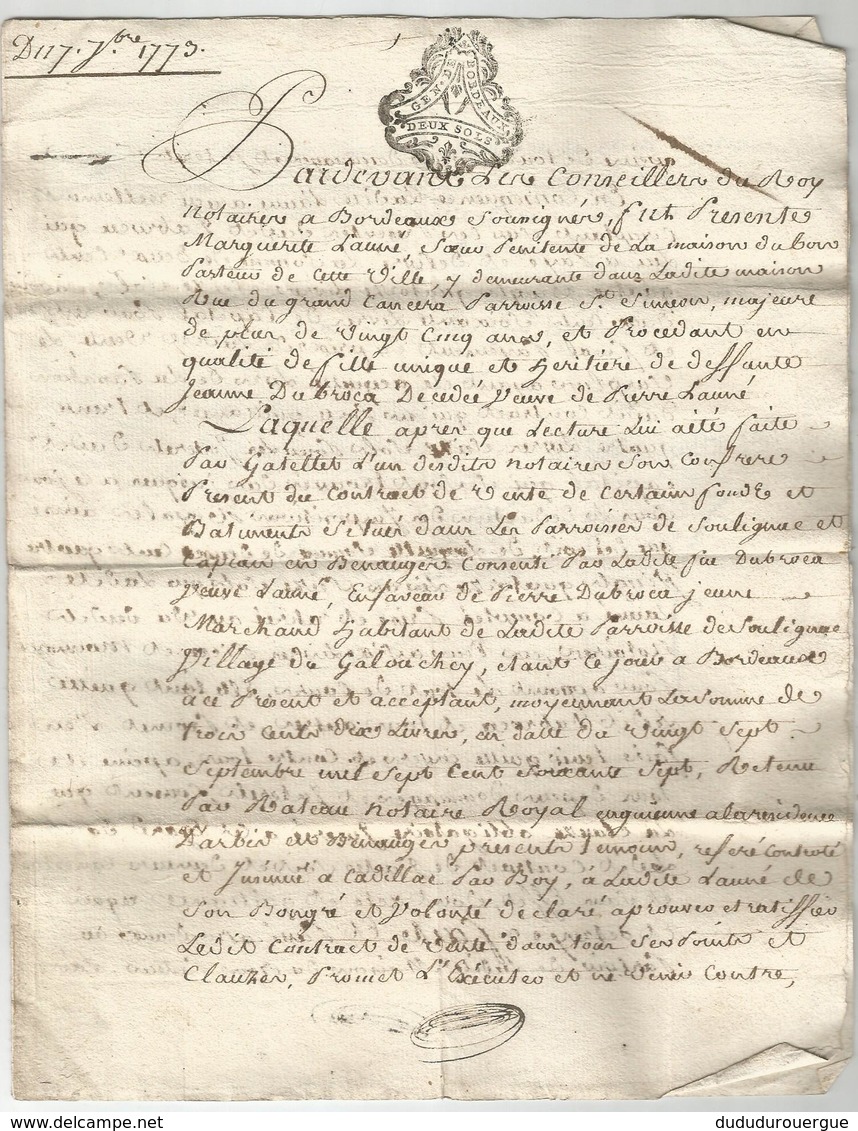 Du 7. 7bre 1773.
GEN. DE BORDEAUX
DEUX SOLS
Pardevant Les Conseillers du Roy
notaires a Bordeaux sousignés, fut Presente
Marguerite Launé Sœur Penitente de La maison du bon
Pasteur de Cette Ville, y demeurante dans Ladite maison
Rue du grand Cancera Parroisse St. Simeon, majeure
de plus de Vingt Cinq ans, et Procedant en
qualité de fille unique et Heritiére de deffunte
Jeanne Dubroca Decedée Veuve de Pierre Launé,
Laquelle apres que Lecture Lui a été faite
Par Gatellet L'un desdits notaires son Confrere
Present du Contract de Vente de Certains fonds et
Batiments Situés dans Les Parroisses de Soulignac et
Caplan en Benauges Consenti Par Ladite fue Dubroca
Veuve Launé, En faveur de Pierre Dubroca jeune
Marchand Habitant de Ladite Parroisse de Soulignac
Village du Galouchey, etant Ce jour a Bordeaux
a Ce Present et acceptant, moyennant La somme de
trois Cents dix Livres, en datte du Vingt Sept
Septembre mil Sept Cent Soixante Sept, Retenu
Par Rateau notaire Royal en guienne a la residence
Darbis et Benauges presents temoins, referé Controlé
et Insinué a Cadillac Par Boy, à Ladite Launé de
Son Bongré et Volonté declaré aprouver et ratiffier
Ledit Contract de Vente dans tous Ses Points et
Clauzes, Promet L'Executer et ne Venir Contre,
dududurouergue
www.delcampe.net